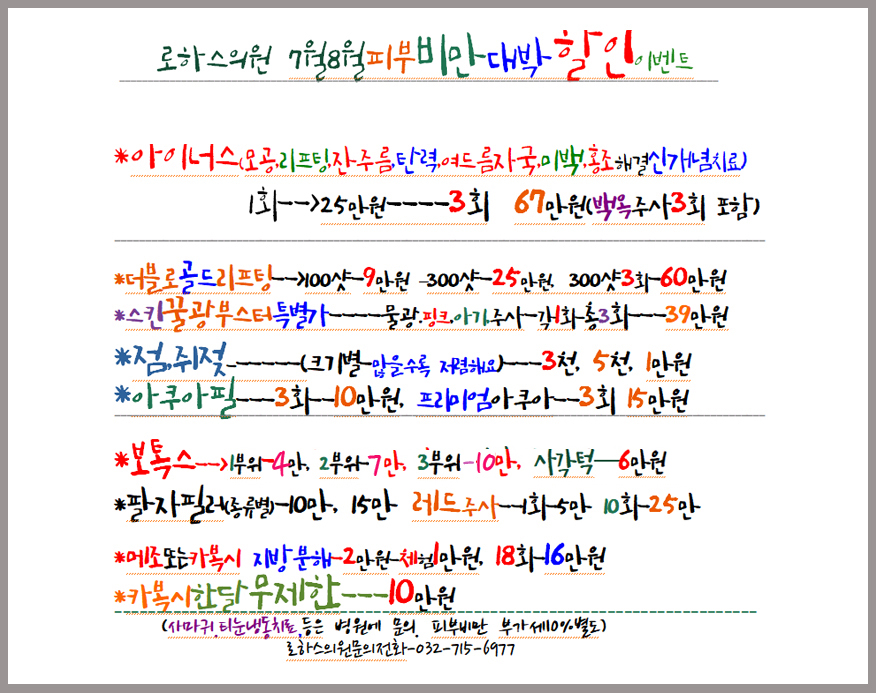 로하스의원 7월8월피부비만대박할인이벤트
*아이너스(모공,리프팅,잔주름,탄력,여드름자국,미백,홍조해결신개념치료)
1회-->25만원----3회 67만원(백옥주사3회 포함)
*더블로골드리프팅-->100샷-9만원 -300샷-25만원, 300샷3회-60만원
*스킨꿀광부스터특별가-----물광,핑크,아기,주사-각1회-총3회---39만원
*점,쥐젖_------(크기별-많을수록 저렴해요)---3천, 5천, 1만원
*아쿠아필---3회--10만원, 프리미엄아쿠아--3회 15만원
*보톡스--->1부위-4만, 2부위-7만, 3부위-10만, 사각턱--6만원
*팔자필러(종류별)-10만, 15만 레드주사--1회-5만 10회-25만
*메조또는카복시 지방분해-2만원-체험1만원, 18회-16만원
*카복시한달무제한---10만원
(사마귀,티눈냉동치료,등은 병원에 문의, 피부비만 부가세10%별도)
로하스의원문의전화-032-715-6977